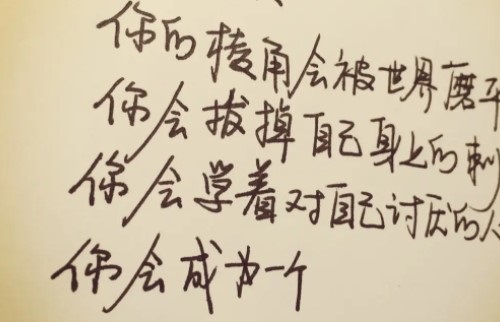 你的棱角会被世界磨平
你会拔掉自己身上的刺
你会学着对自己讨厌的人
你会成为一个